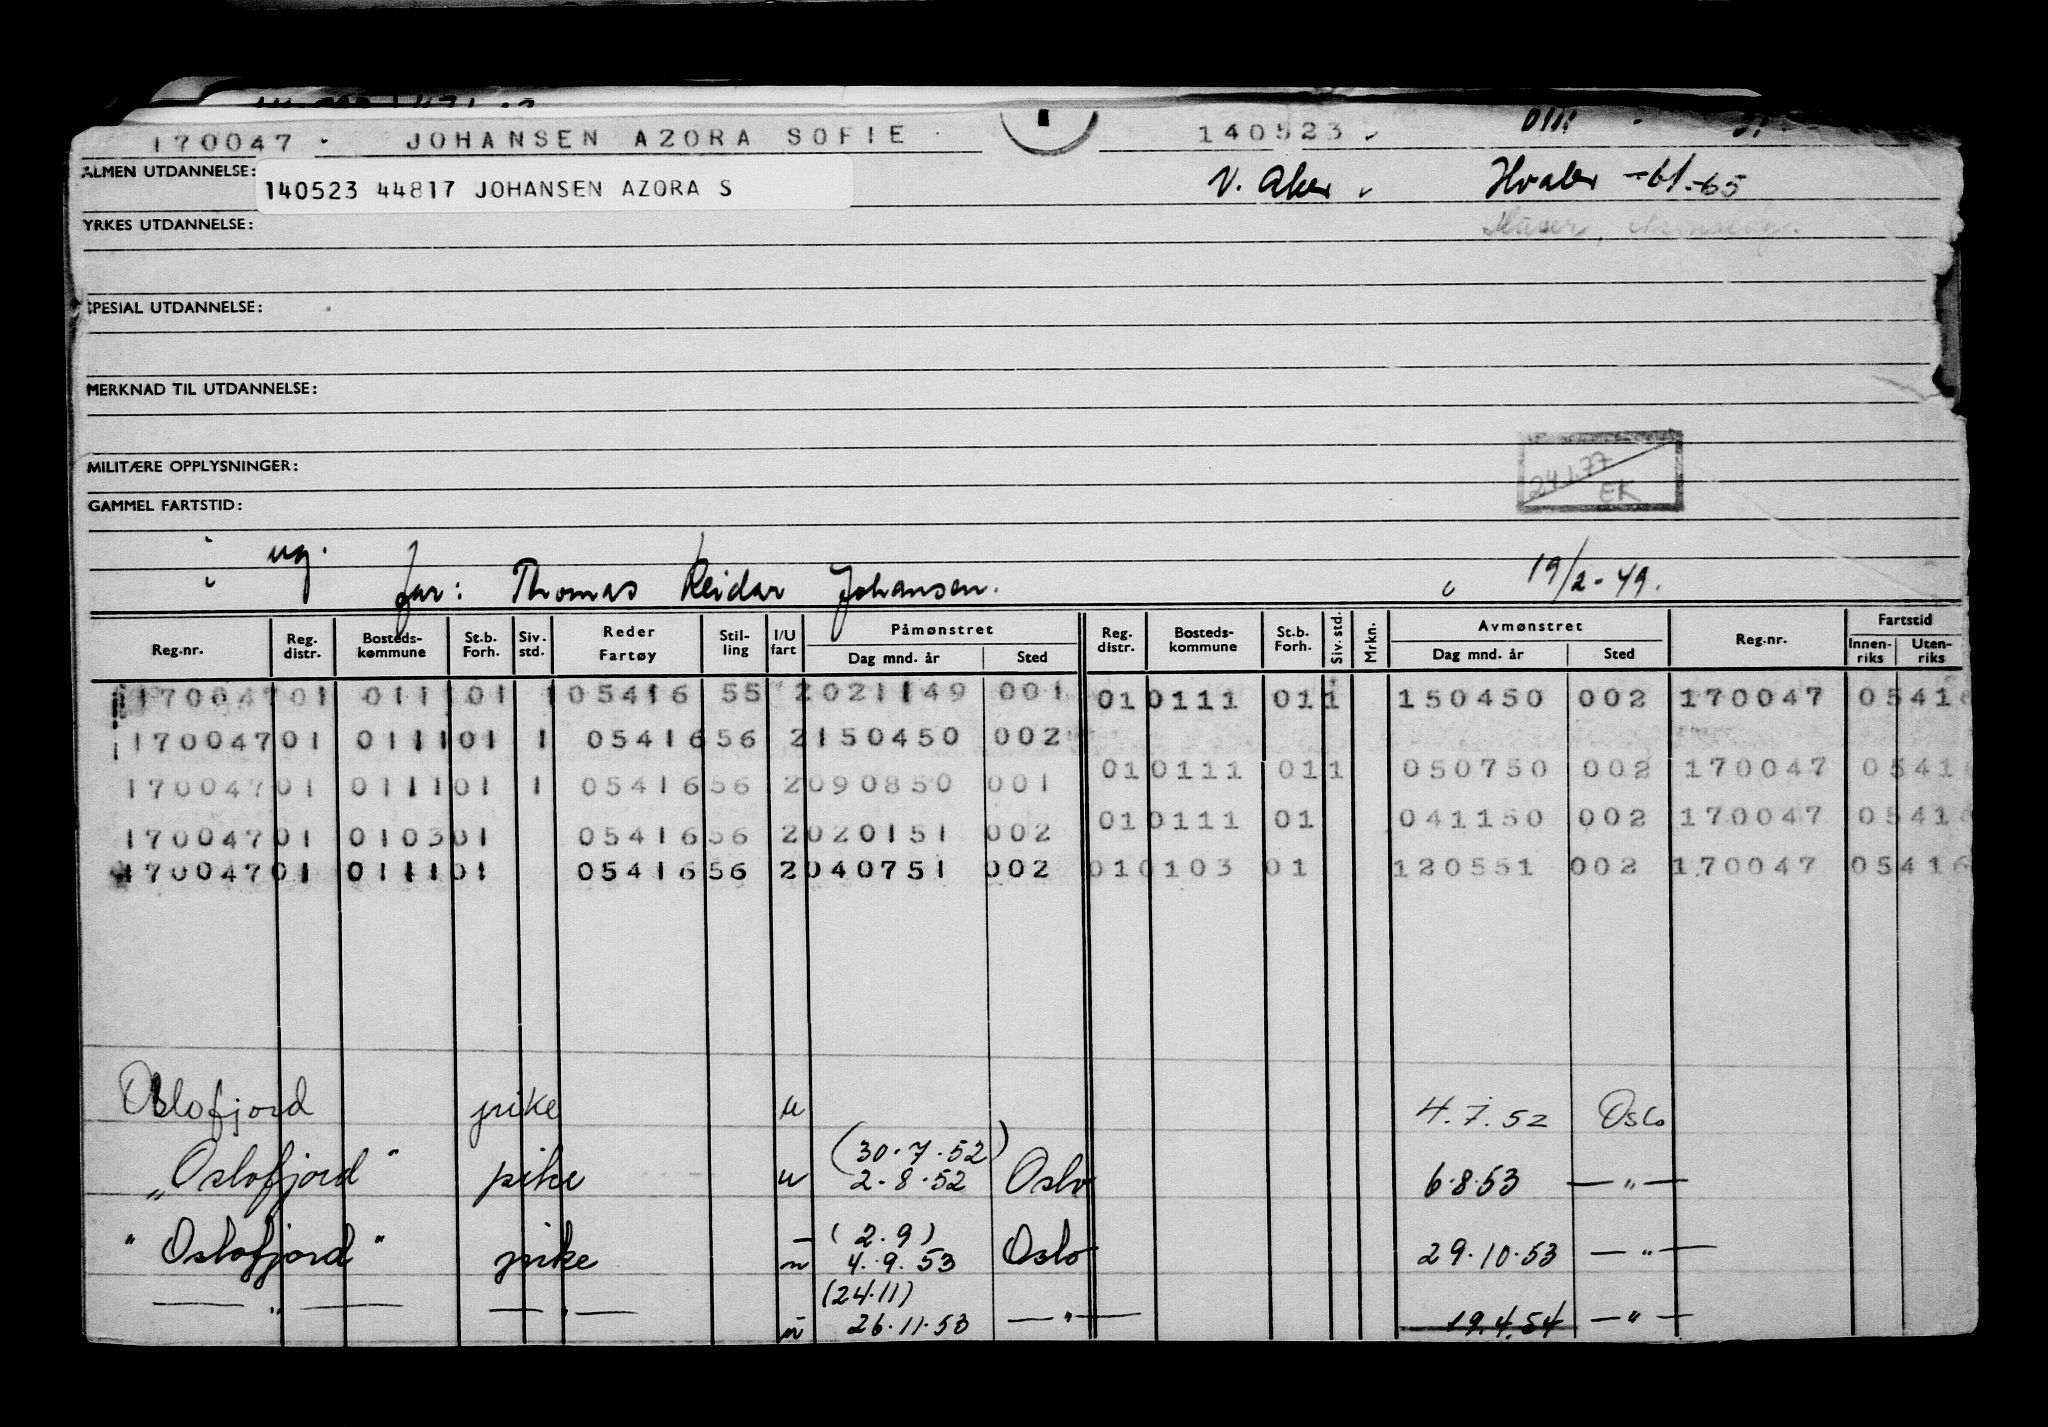 170047 · JOHANSEN AZORA SOFIE 140523
ALMEN UTDANNELSE: 140523 44817 JOHANSEN AZORA S V. Aker Hvaler -61-65
YRKES UTDANNELSE:
SPESIAL UTDANNELSE:
MERKNAD TIL UTDANNELSE:
MILITÆRE OPPLYSNINGER:
24.1.77
EK
GAMMEL FARTSTID:
ug.
far: Thomas Reidar Johansen. 19/2-49.
Reg.nr. Reg. distr. Bosteds-kommune St.b. Forh. Siv. std. Reder Fartøy Stil-ling I/U fart Påmønstret Dag mnd. år Sted Reg. distr. Bosteds-kommune St.b. Forh. Siv. std. Mrkn. Avmønstret Dag mnd. år Sted Reg.nr. Fartstid Innen-riks Uten-riks
170047 01 0111 01 1 05416 55 2 021149 001 01 0111 01 1 150450 002 170047 05416
170047 01 0111 01 1 05416 56 2 150450 002
01 0111 01 1 050750 002 170047 05416
170047 01 0111 01 1 05416 56 2 090850 001
01 0111 01 041150 002 170047 05416
170047 01 0103 01 05416 56 2 020151 002
170047 01 0111 01 05416 56 2 040751 002 01 0103 01 120551 002 170047 05416
Oslofjord pike u 4.7.52 Oslo
(30.7.52)
"Oslofjord" pike u 2.8.52 Oslo 6.8.53 — " —
(2.9)
"Oslofjord" pike u 4.9.53 Oslo 29.10.53 — " —
(24.11)
— " — — " — u 26.11.53 — " — 19.4.54 — " —